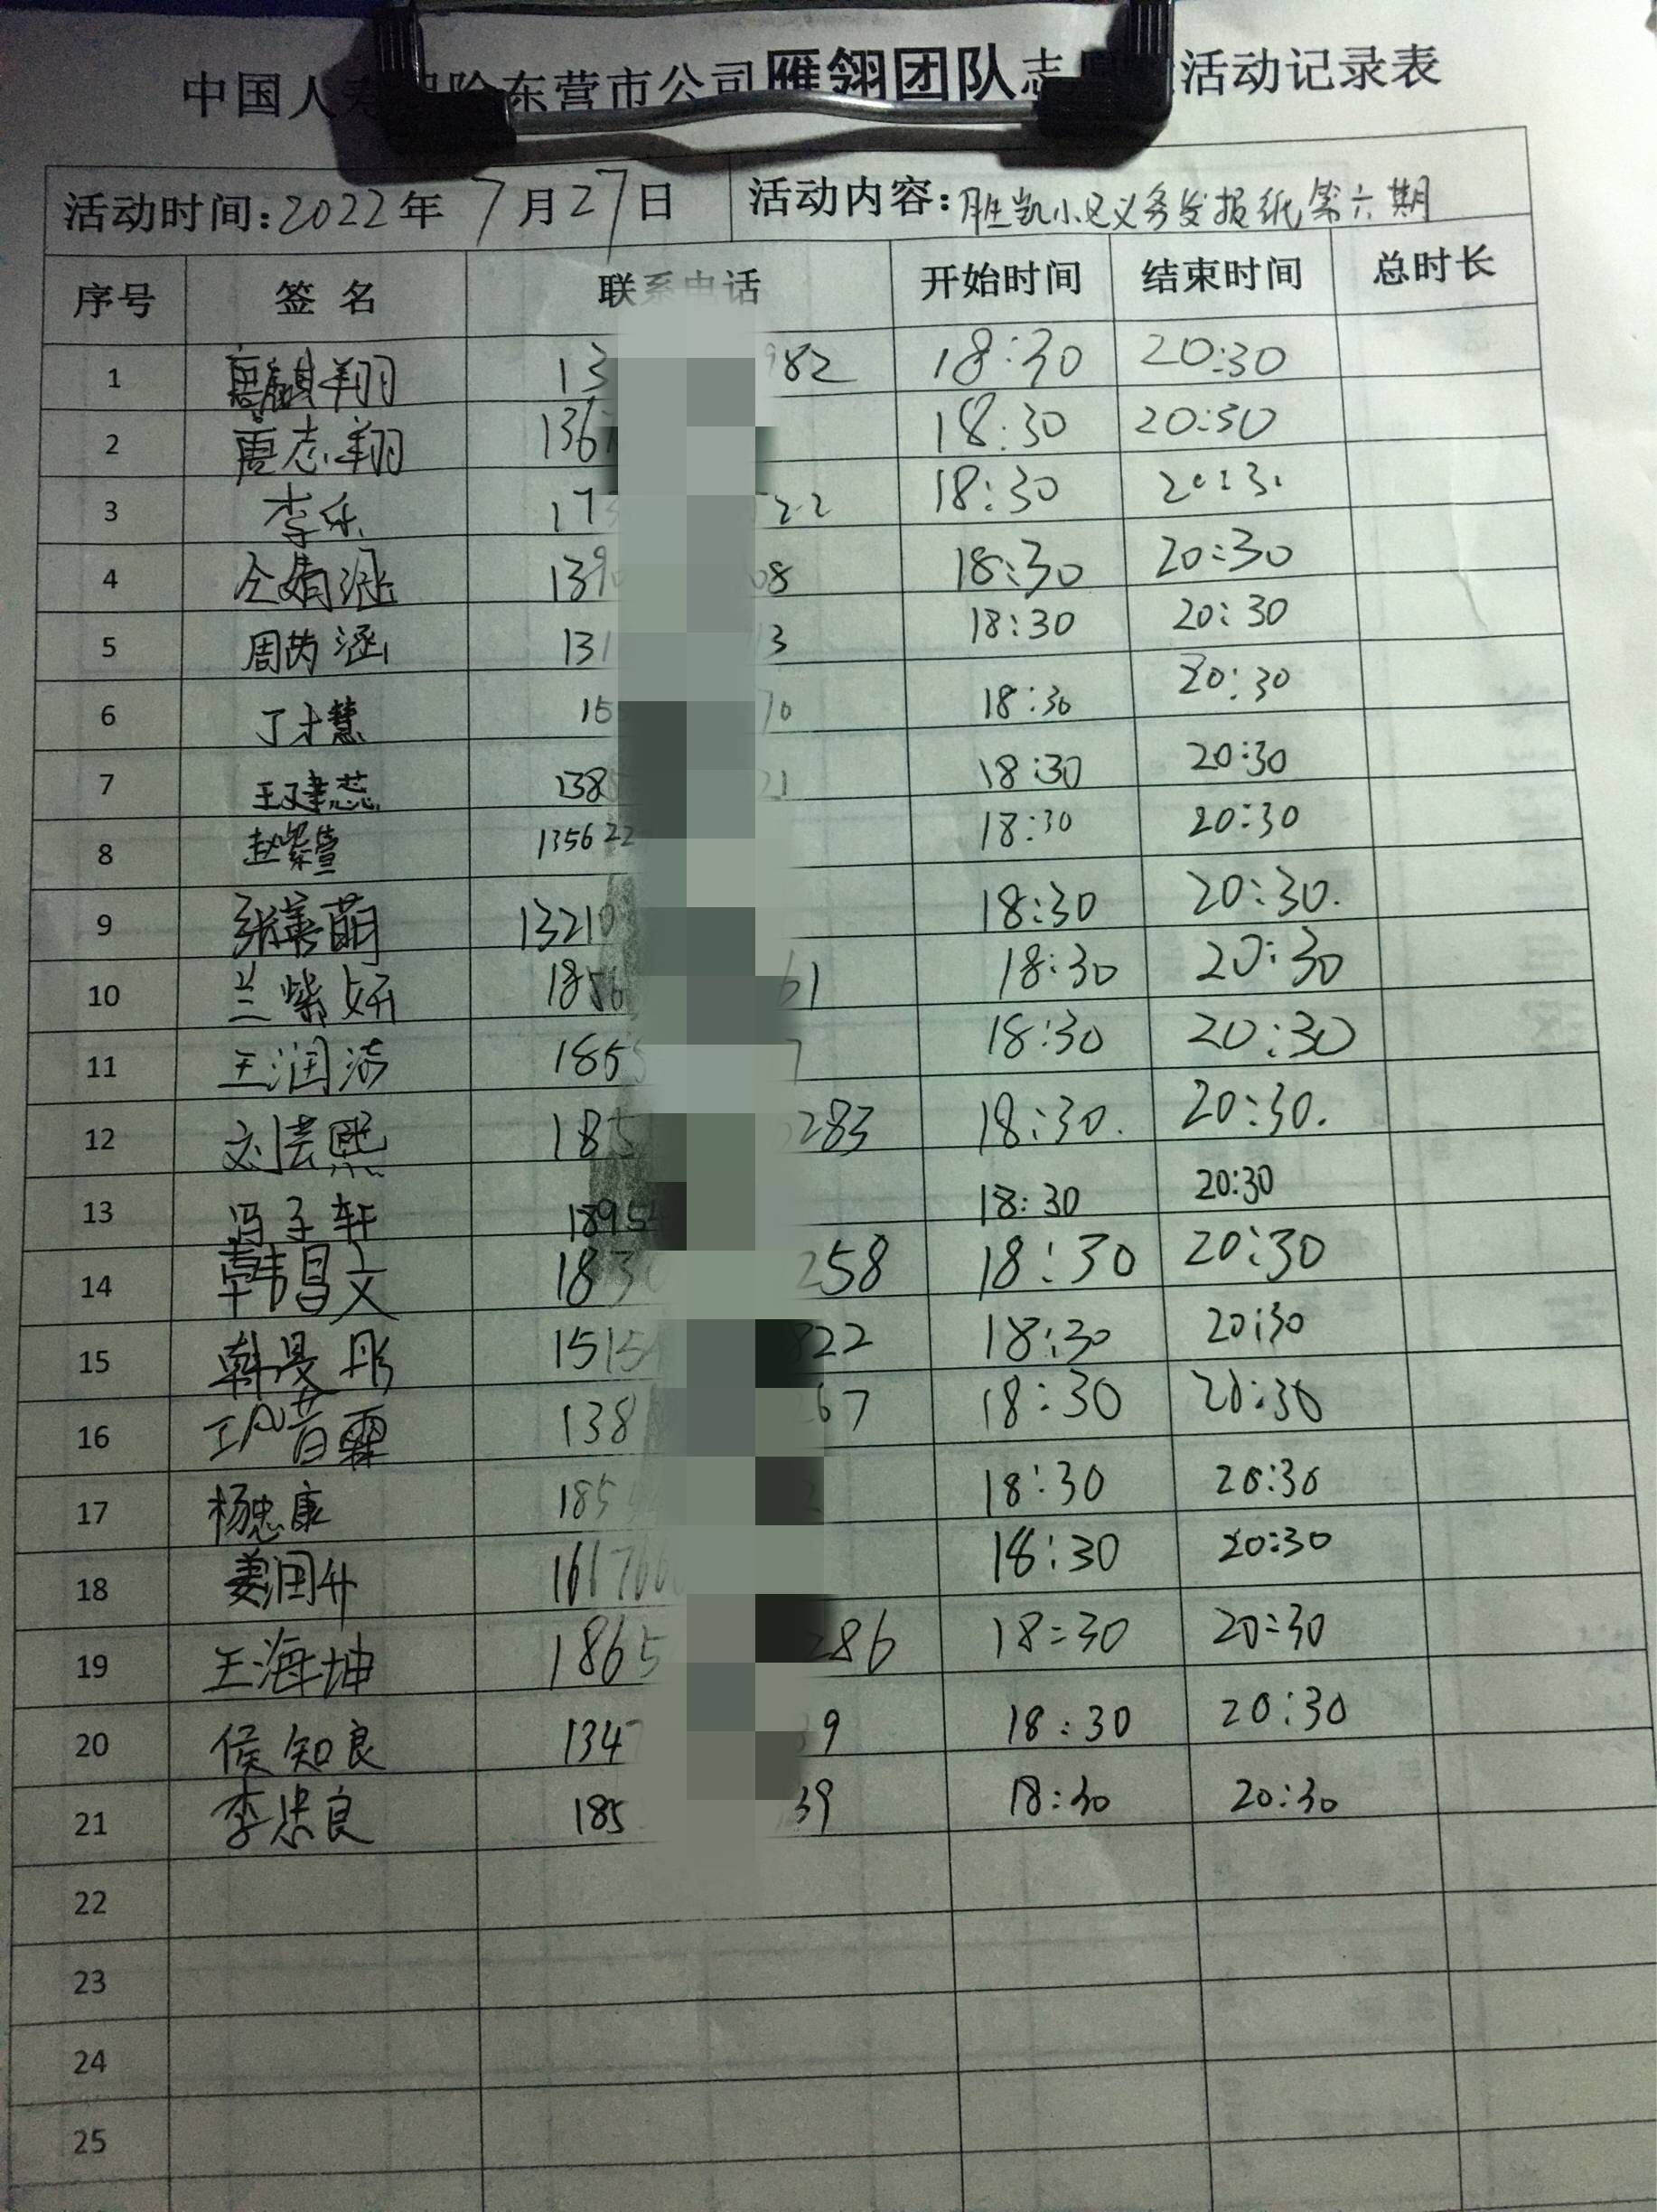 中国人寿保险东营市公司雁翎团队志 活动记录表
活动时间:2022年7月27日 活动内容:胜凯小区义务发报纸第六期
序号 签名 联系电话 开始时间 结束时间 总时长
1 唐麒翔 13 982 18:30 20:30
2 唐志翔 136 18:30 20:30
3 李乐 17 22 18:30 20:30
4 仝婧涵 139 08 18:30 20:30
5 周芮涵 131 3 18:30 20:30
6 丁才慧 15 70 18:30 20:30
7 王建蕊 138 21 18:30 20:30
8 赵紫萱 135622 18:30 20:30
9 张美萌 13210 18:30 20:30.
10 兰紫妍 1856 61 18:30 20:30
11 王润涛 1855 7 18:30 20:30
12 刘芸熙 185 283 18:30. 20:30.
13 冯子轩 1895 18:30 20:30
14 韩昌文 183 258 18:30 20:30
15 韩旻彤 1515 822 18:30 20:30
16 138 67 18:30 20:30
17 杨忠康 185 2 18:30 20:30
18 姜国升 161766 18:30 20:30
19 王海坤 1865 286 18:30 20:30
20 侯知良 134 39 18:30 20:30
21 李忠良 185 39 18:30 20:30
22
23
24
25